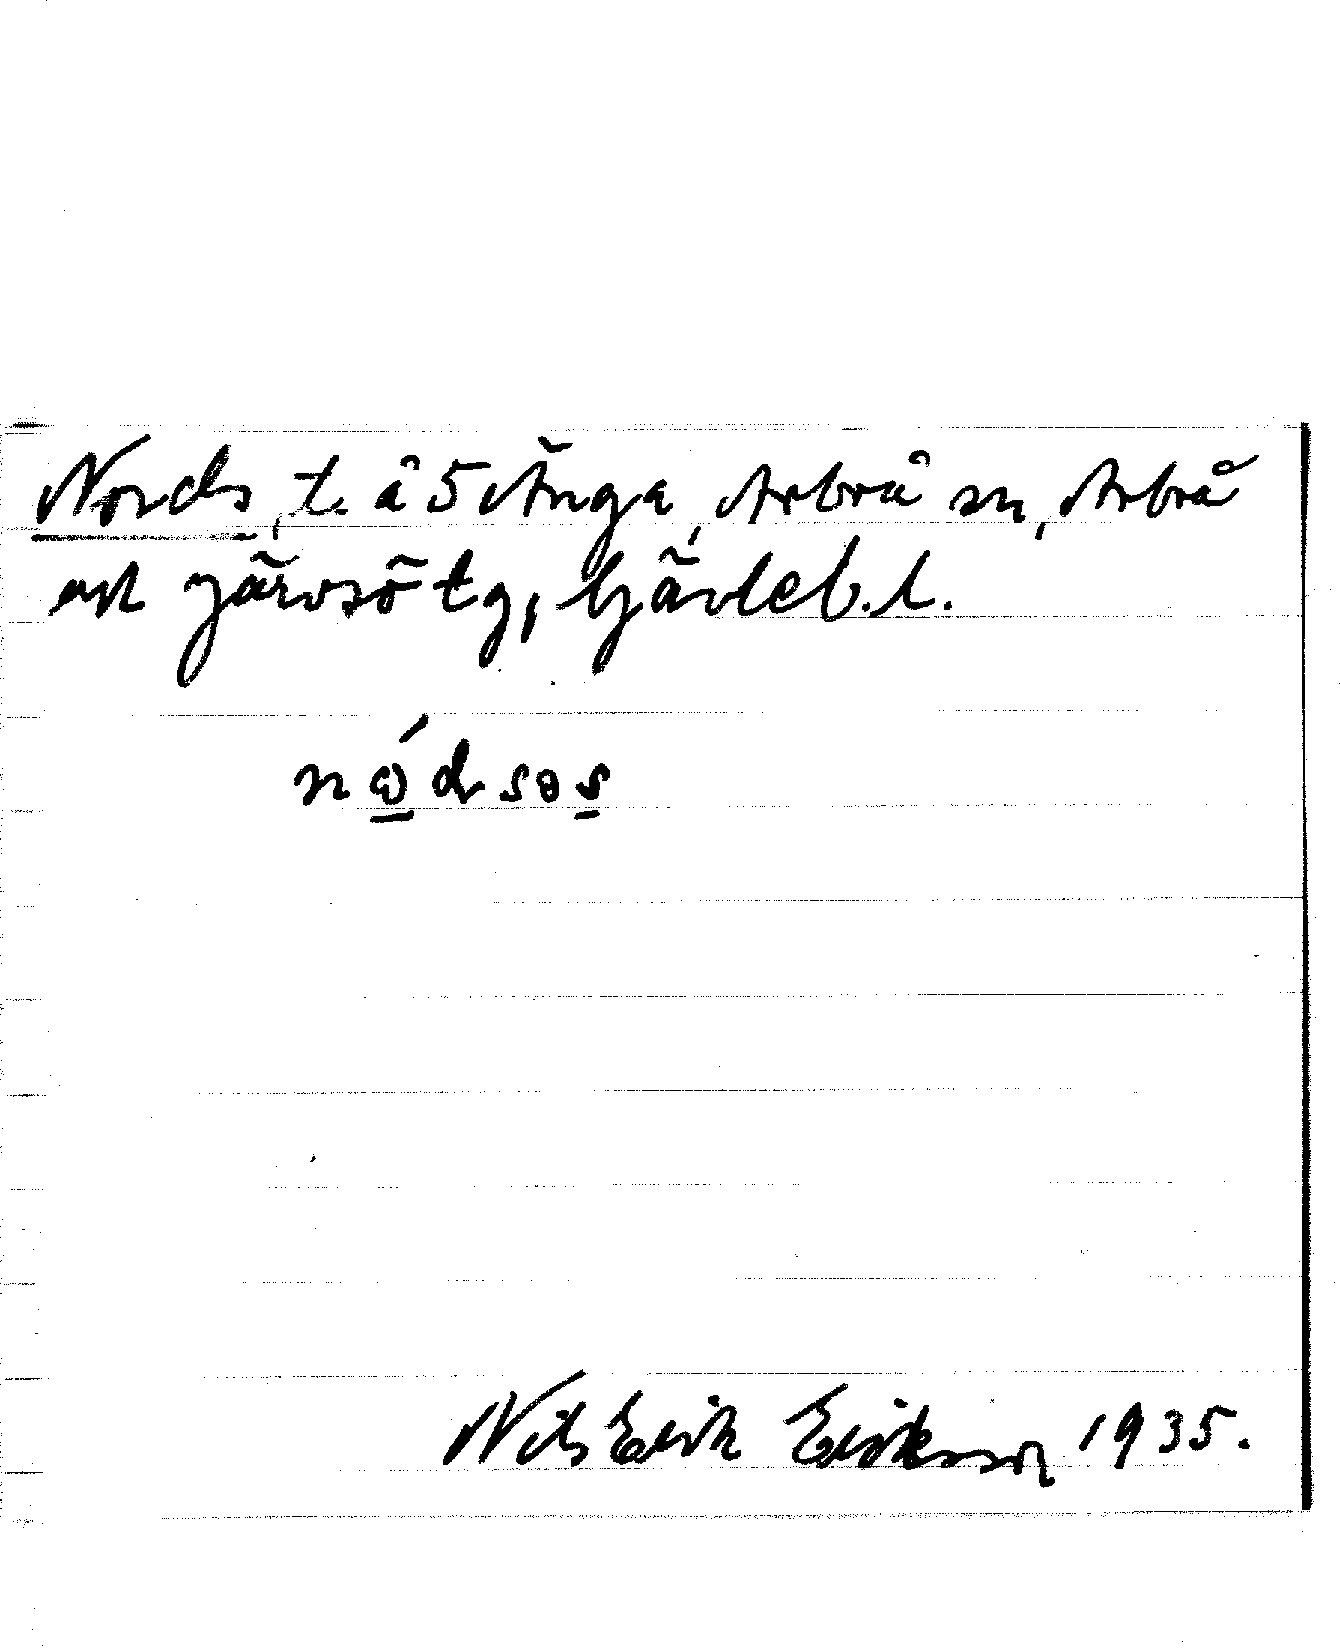 Nords, t. å 5 Änga, Arbrå sn, Arbrå
och Järvsö tg, Gävleb. l.
nώdsɵs
Nils Erik Eriksson 1935.